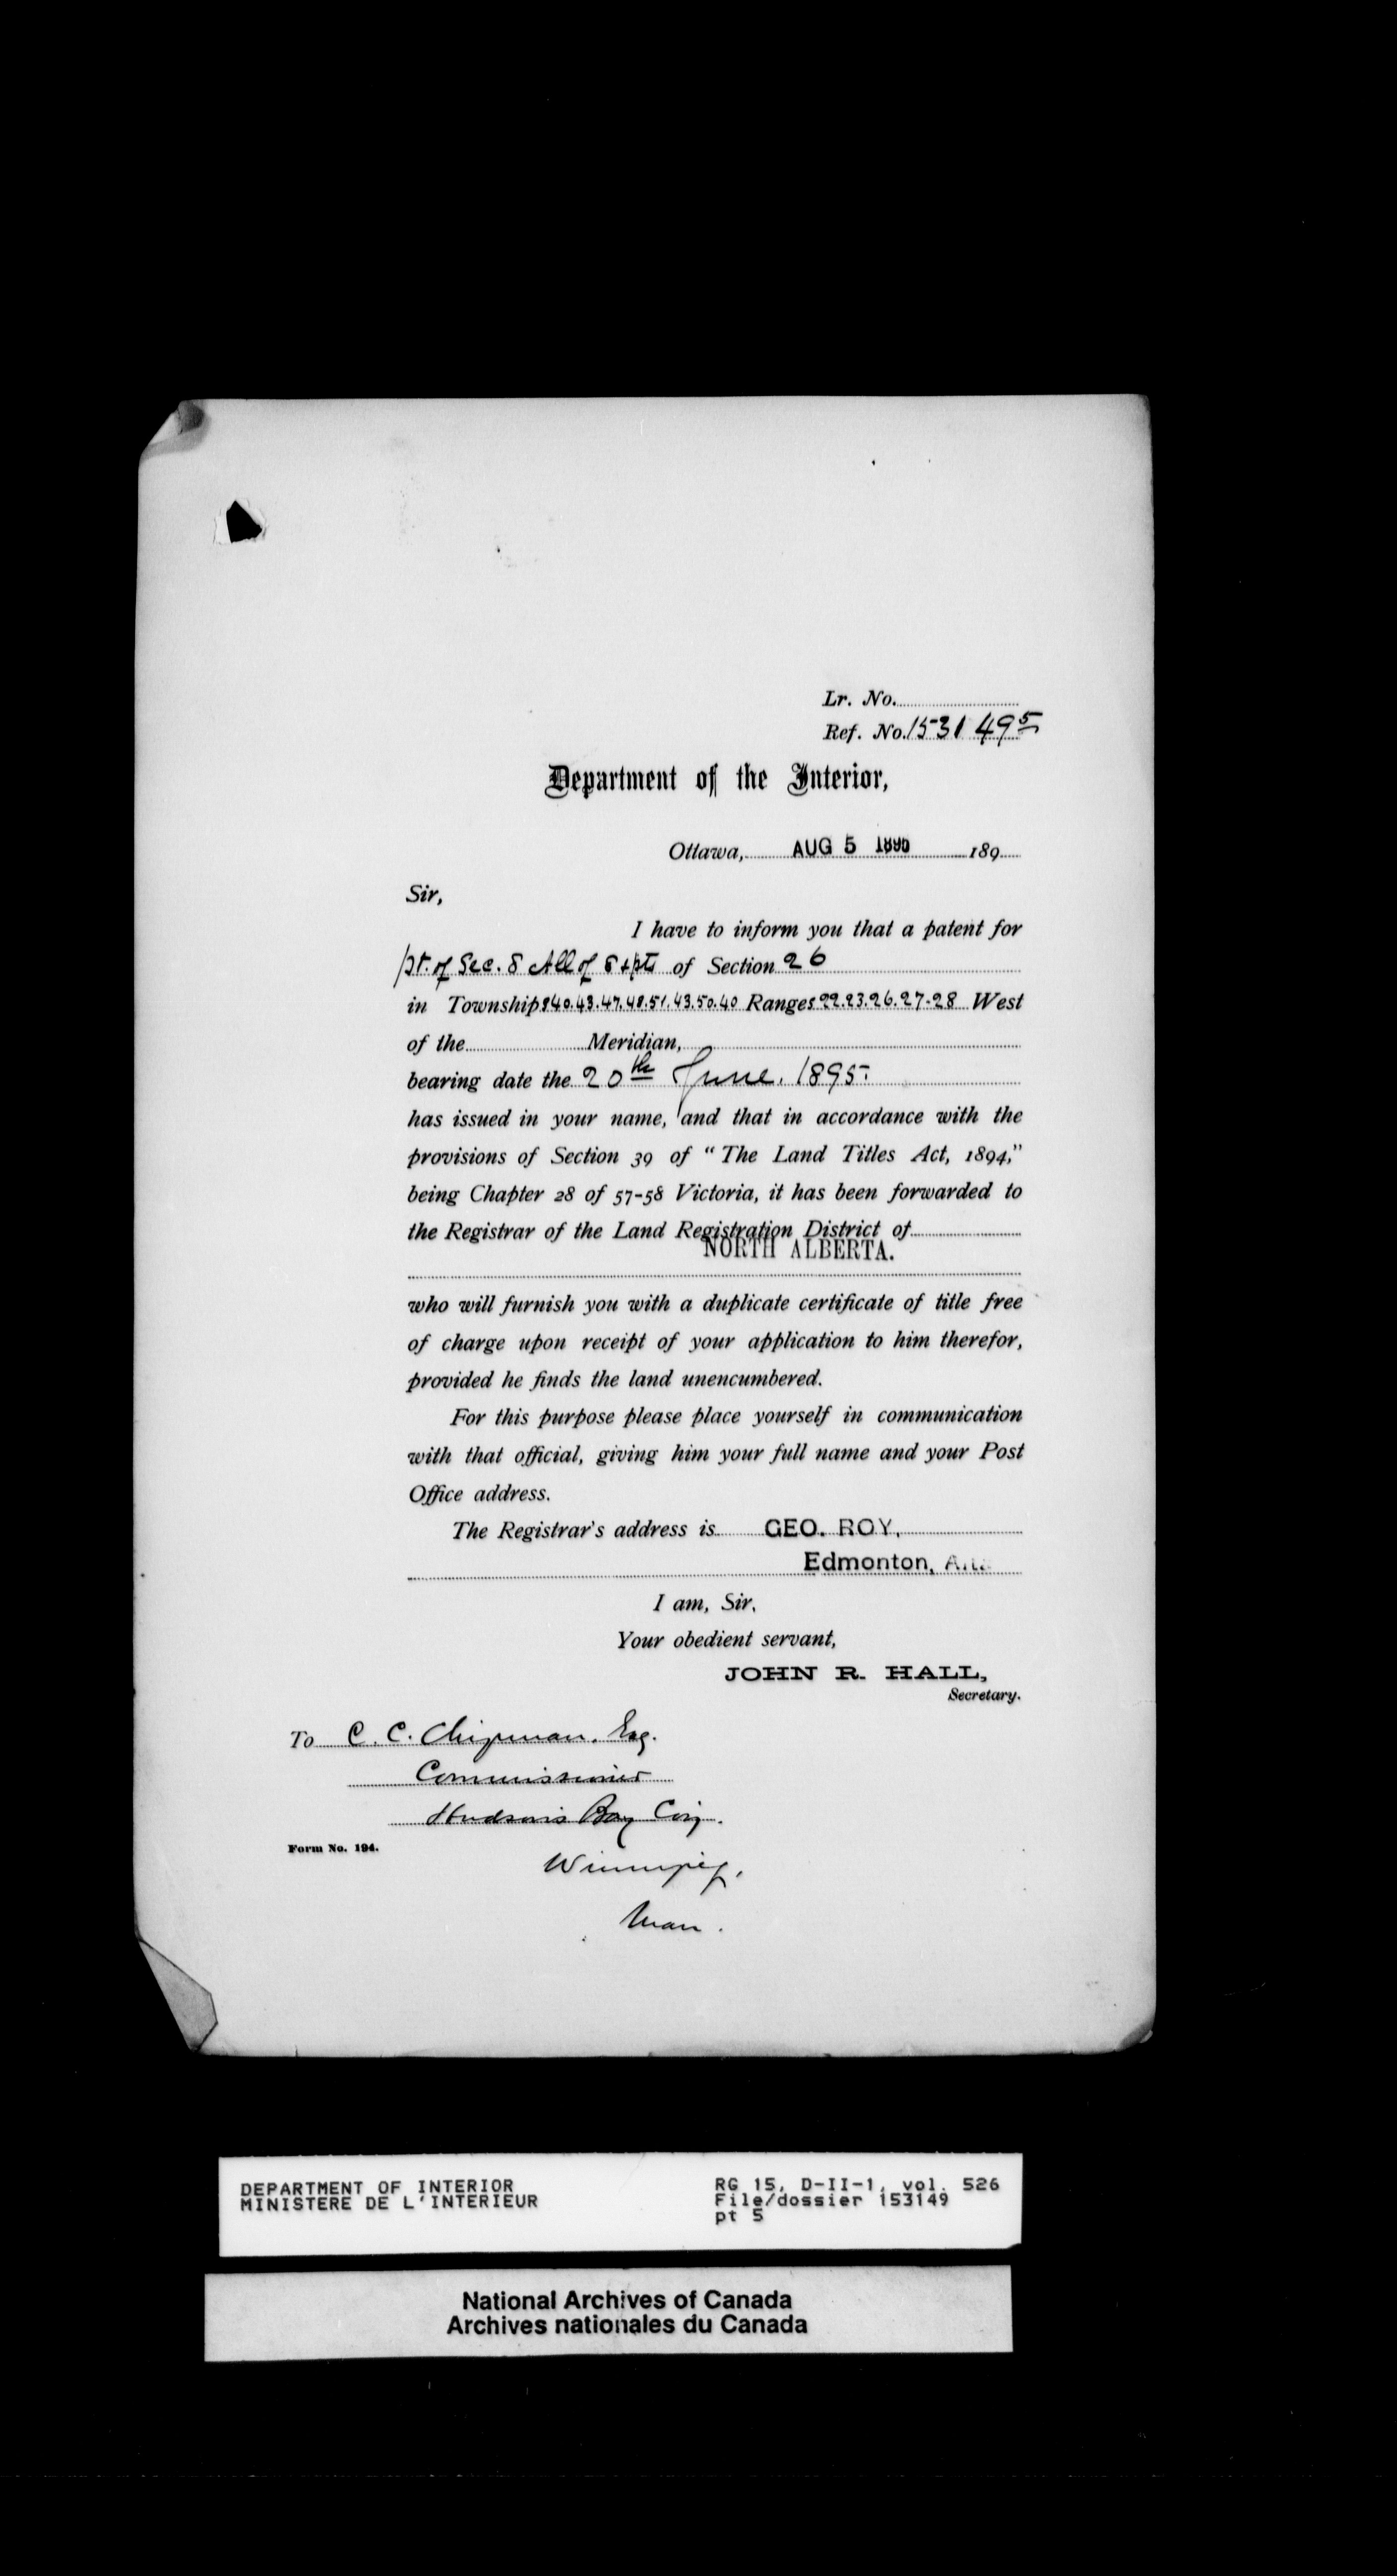 Lr. No.
Ref. No. 153149 5
Department of the Interior,
Ottawa, AUG 5 189
Sir,
I have to inform you that a patent for
pt. of Sec. 8 All of 8 & pts of Section 26
in Townships 40.43.47.48.51.43.50.40 Ranges 22.23.26.27-28 West
of the Meridian,
bearing date the 20th June. 1895.
has issued in your name, and that in accordance with the
provisions of Section 39 of "The Land Titles Act, 1894,"
being Chapter 28 of 57-58 Victoria, it has been forwarded to
the Registrar of the Land Registration District of
NORTH ALBERTA.
who will furnish you with a duplicate certificate of title free
of charge upon receipt of your application to him therefor,
provided he finds the land unencumbered.
For this purpose please place yourself in communication
with that official, giving him your full name and your Post
Office address.
The Registrar's address is GEO. ROY,
Edmonton, Alta.
I am, Sir,
Your obedient servant,
JOHN R. HALL,
Secretary.
To C. C. Chipman. Esq.
Commissioner
Hudson's Bay Coy.
Form No. 194.
Winnipeg,
Man.
DEPARTMENT OF INTERIOR
MINISTERE DE L'INTERIEUR
RG 15, D-II-1, vol. 526
File/dossier 153149
pt 5
National Archives of Canada
Archives nationales du Canada